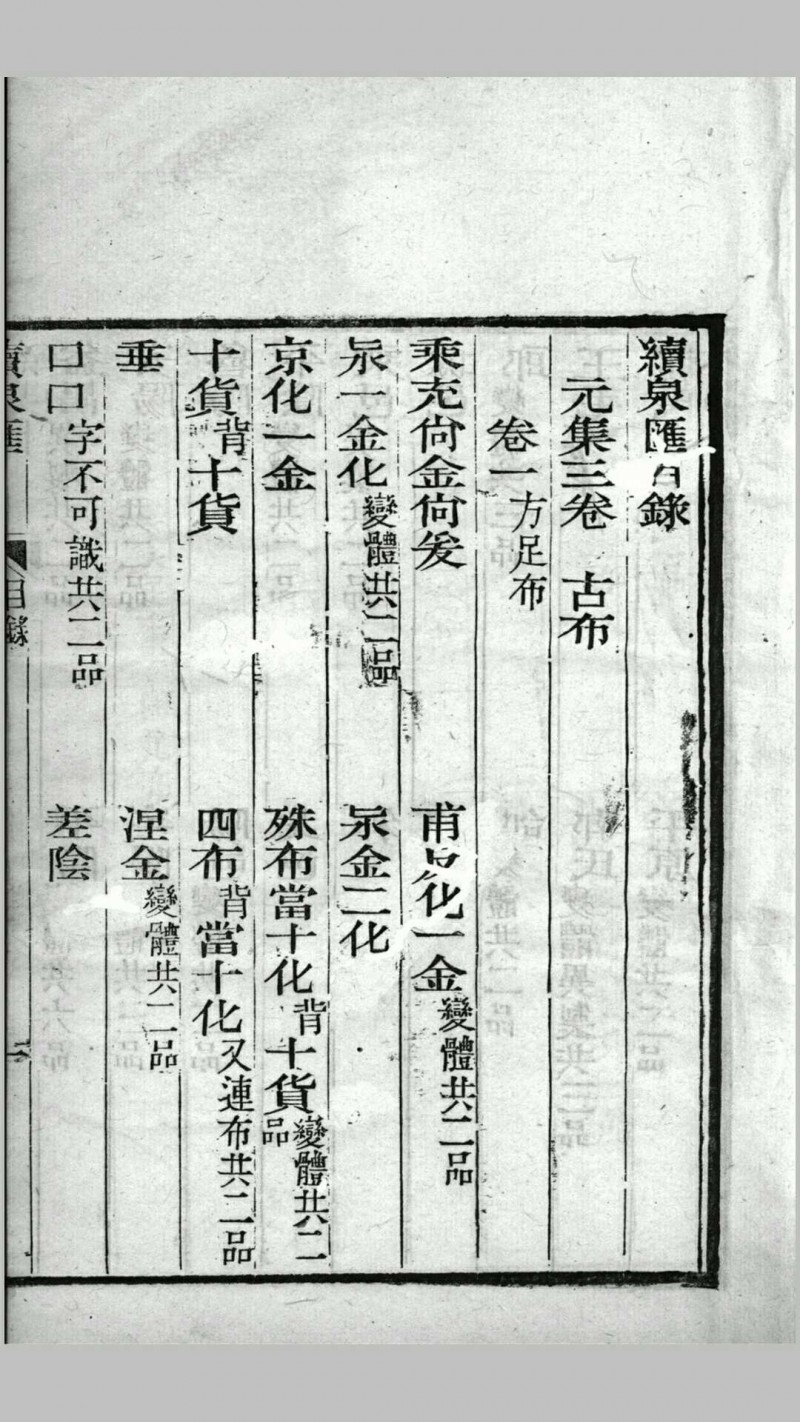 續泉匯目錄
元集三卷 古布
卷一方足布
乘充尙金尙爰 甫 化一金變體共二品
泉一金化變體共二品 泉金二化
京化一金 殊布當十化背十貨變體共二品
十貨背十貨 四布背當十化又連布共二品
垂 涅金變體共二品
口口字不可識共二品 差陰
續泉匯 目錄 一